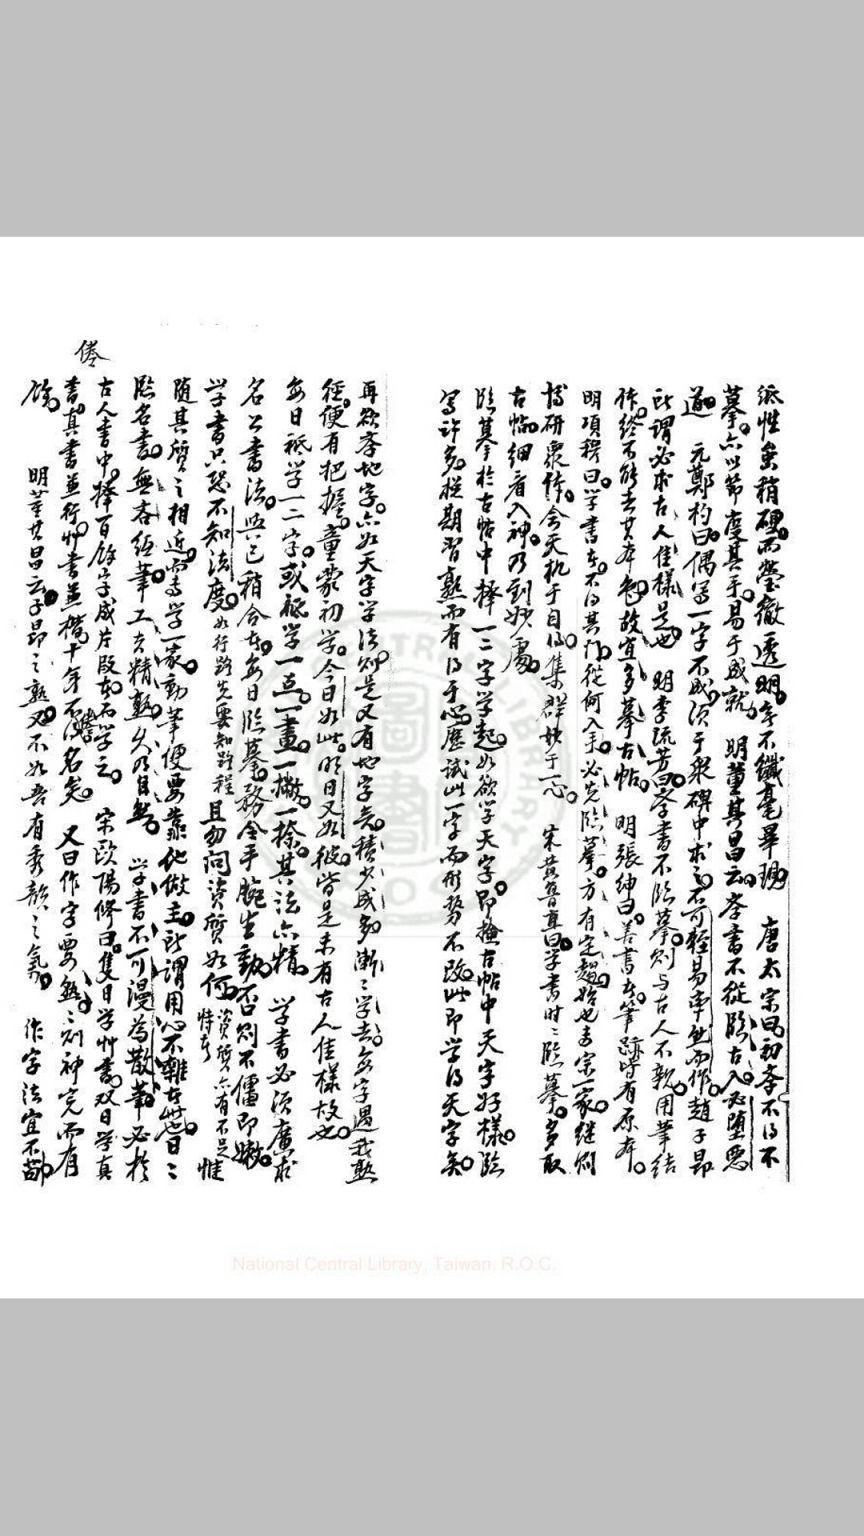 紙性矣稍硬而瑩徹透明字不纖毫畢現 唐太宗曰初学不得不
摹六以節度其手易于成就 明董其昌云学書不從臨古入必堕惡
道 元鄭杓曰偶写一字不成須于衆碑中求之不可輕易率然而作趙子昂
所謂必求古人佳樣是也 明李流芳曰学書不臨摹則与古人不親用筆结
作終不能去其本色故宜多摹古帖 明張紳曰善書者筆跡皆有原本
明項穆曰学書者不得其門從何入手必先臨摹方有定趨始也専宗一家継則
博研衆作会天机于自得集群妙于一心 宋黄魯直曰学書時二臨摹多取
古帖細看入神乃到妙處
臨摹於古帖中擇一二字学起如欲学天字即撫古帖中天字好樣臨
写许多挺期習熟而有得于心應試此一字而形势不改此即学得天字矣
再欲学地字六如天字学法則是又有地字矣積少成多漸二学去每字遇我熟
徑便有把握童蒙初学今日如此明日又如彼皆是未有古人佳樣故也
每日祗学一二字或祗学一点一畫一撇一捺其法六精 学書必須廣求
名公書法與己稍合者每日臨摹務令手腕生動否則不僵即嫩
学書只恐不知法度如行路先要知路程且勿问資質如何資質六有不足恃者惟
随其質之相近専学一家動筆便要靠他做主所謂用心不雜者此也日二
臨名書無吝紙筆工夫精熟久乃自然 学書不可漫為散筆必於
古人書中擇百餘字成片段者而学之 宋欧陽修曰隻日学艸書双日学真
書真書兼行艸書兼楷十年不倦當得名矣 又曰作字要熟二則神完而有
倦
餘 明董其昌云子昂之熟又不如吾有秀韻之氣 作字法宜不苟
National Central Library, Taiwan. R.O.C.